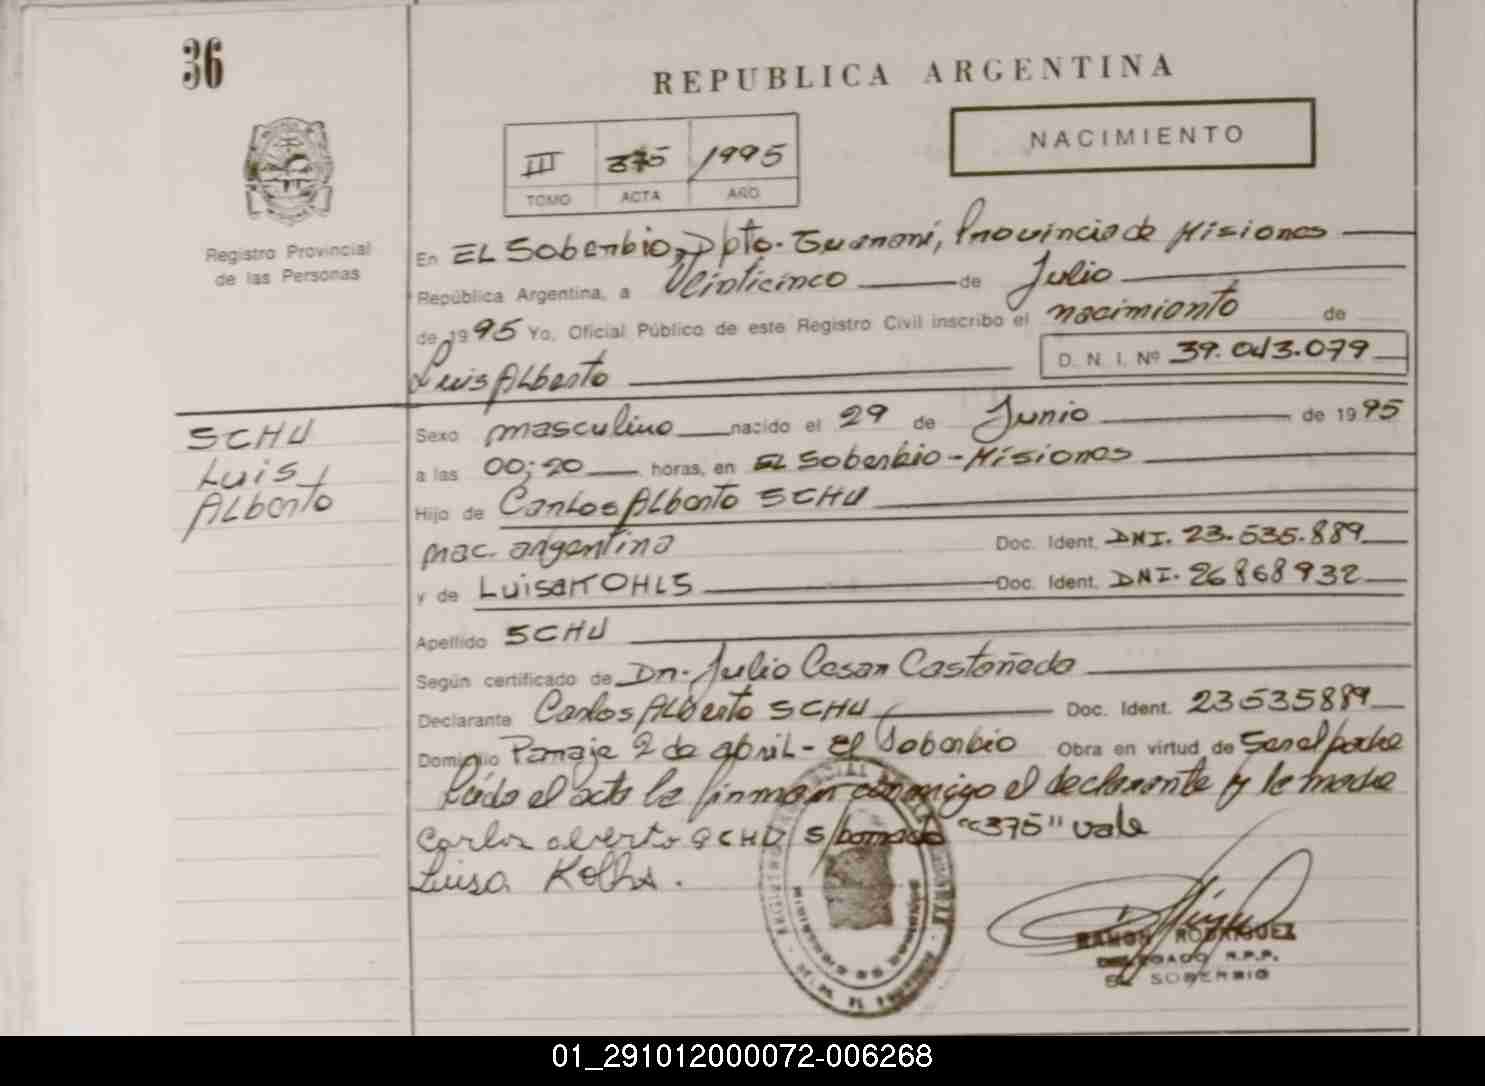 36
REPUBLICA ARGENTINA
NACIMIENTO
III 375 1995
TOMO ACTA AÑO
Registro Provincial
de las Personas
En EL Soberbio, Dpto. Guarani, Provincia de Misiones
República Argentina, a Veinticinco de Julio
de 1995 Yo, Oficial Público de este Registro Civil inscribo el nacimiento de
Luis Alberto D. N. I. Nº 39.043.079
SCHU
Luis
Alberto
Sexo masculino nacido el 29 de Junio de 1995
a las 00:20 horas, en EL Soberbio - Misiones
Hijo de Carlos Alberto SCHU
nac. argentina Doc. Ident. DNI. 23.535.889
y de Luisa KOHLS Doc. Ident. DNI. 26868932
Apellido SCHU
Según certificado de Dn. Julio Cesar Castañeda
Declarante Carlos Alberto SCHU Doc. Ident. 23535889
Domicilio Paraje 2 de abril - El Soberbio Obra en virtud de Ser el padre
Leída el acta la firman conmigo el declarante y la madre
Carlos alverto SCHU S/borrado "375" vale
Luisa Kolhs.
RAMON RODRIGUEZ
DELEGADO R.P.P.
EL SOBERBIO
01_291012000072-006268